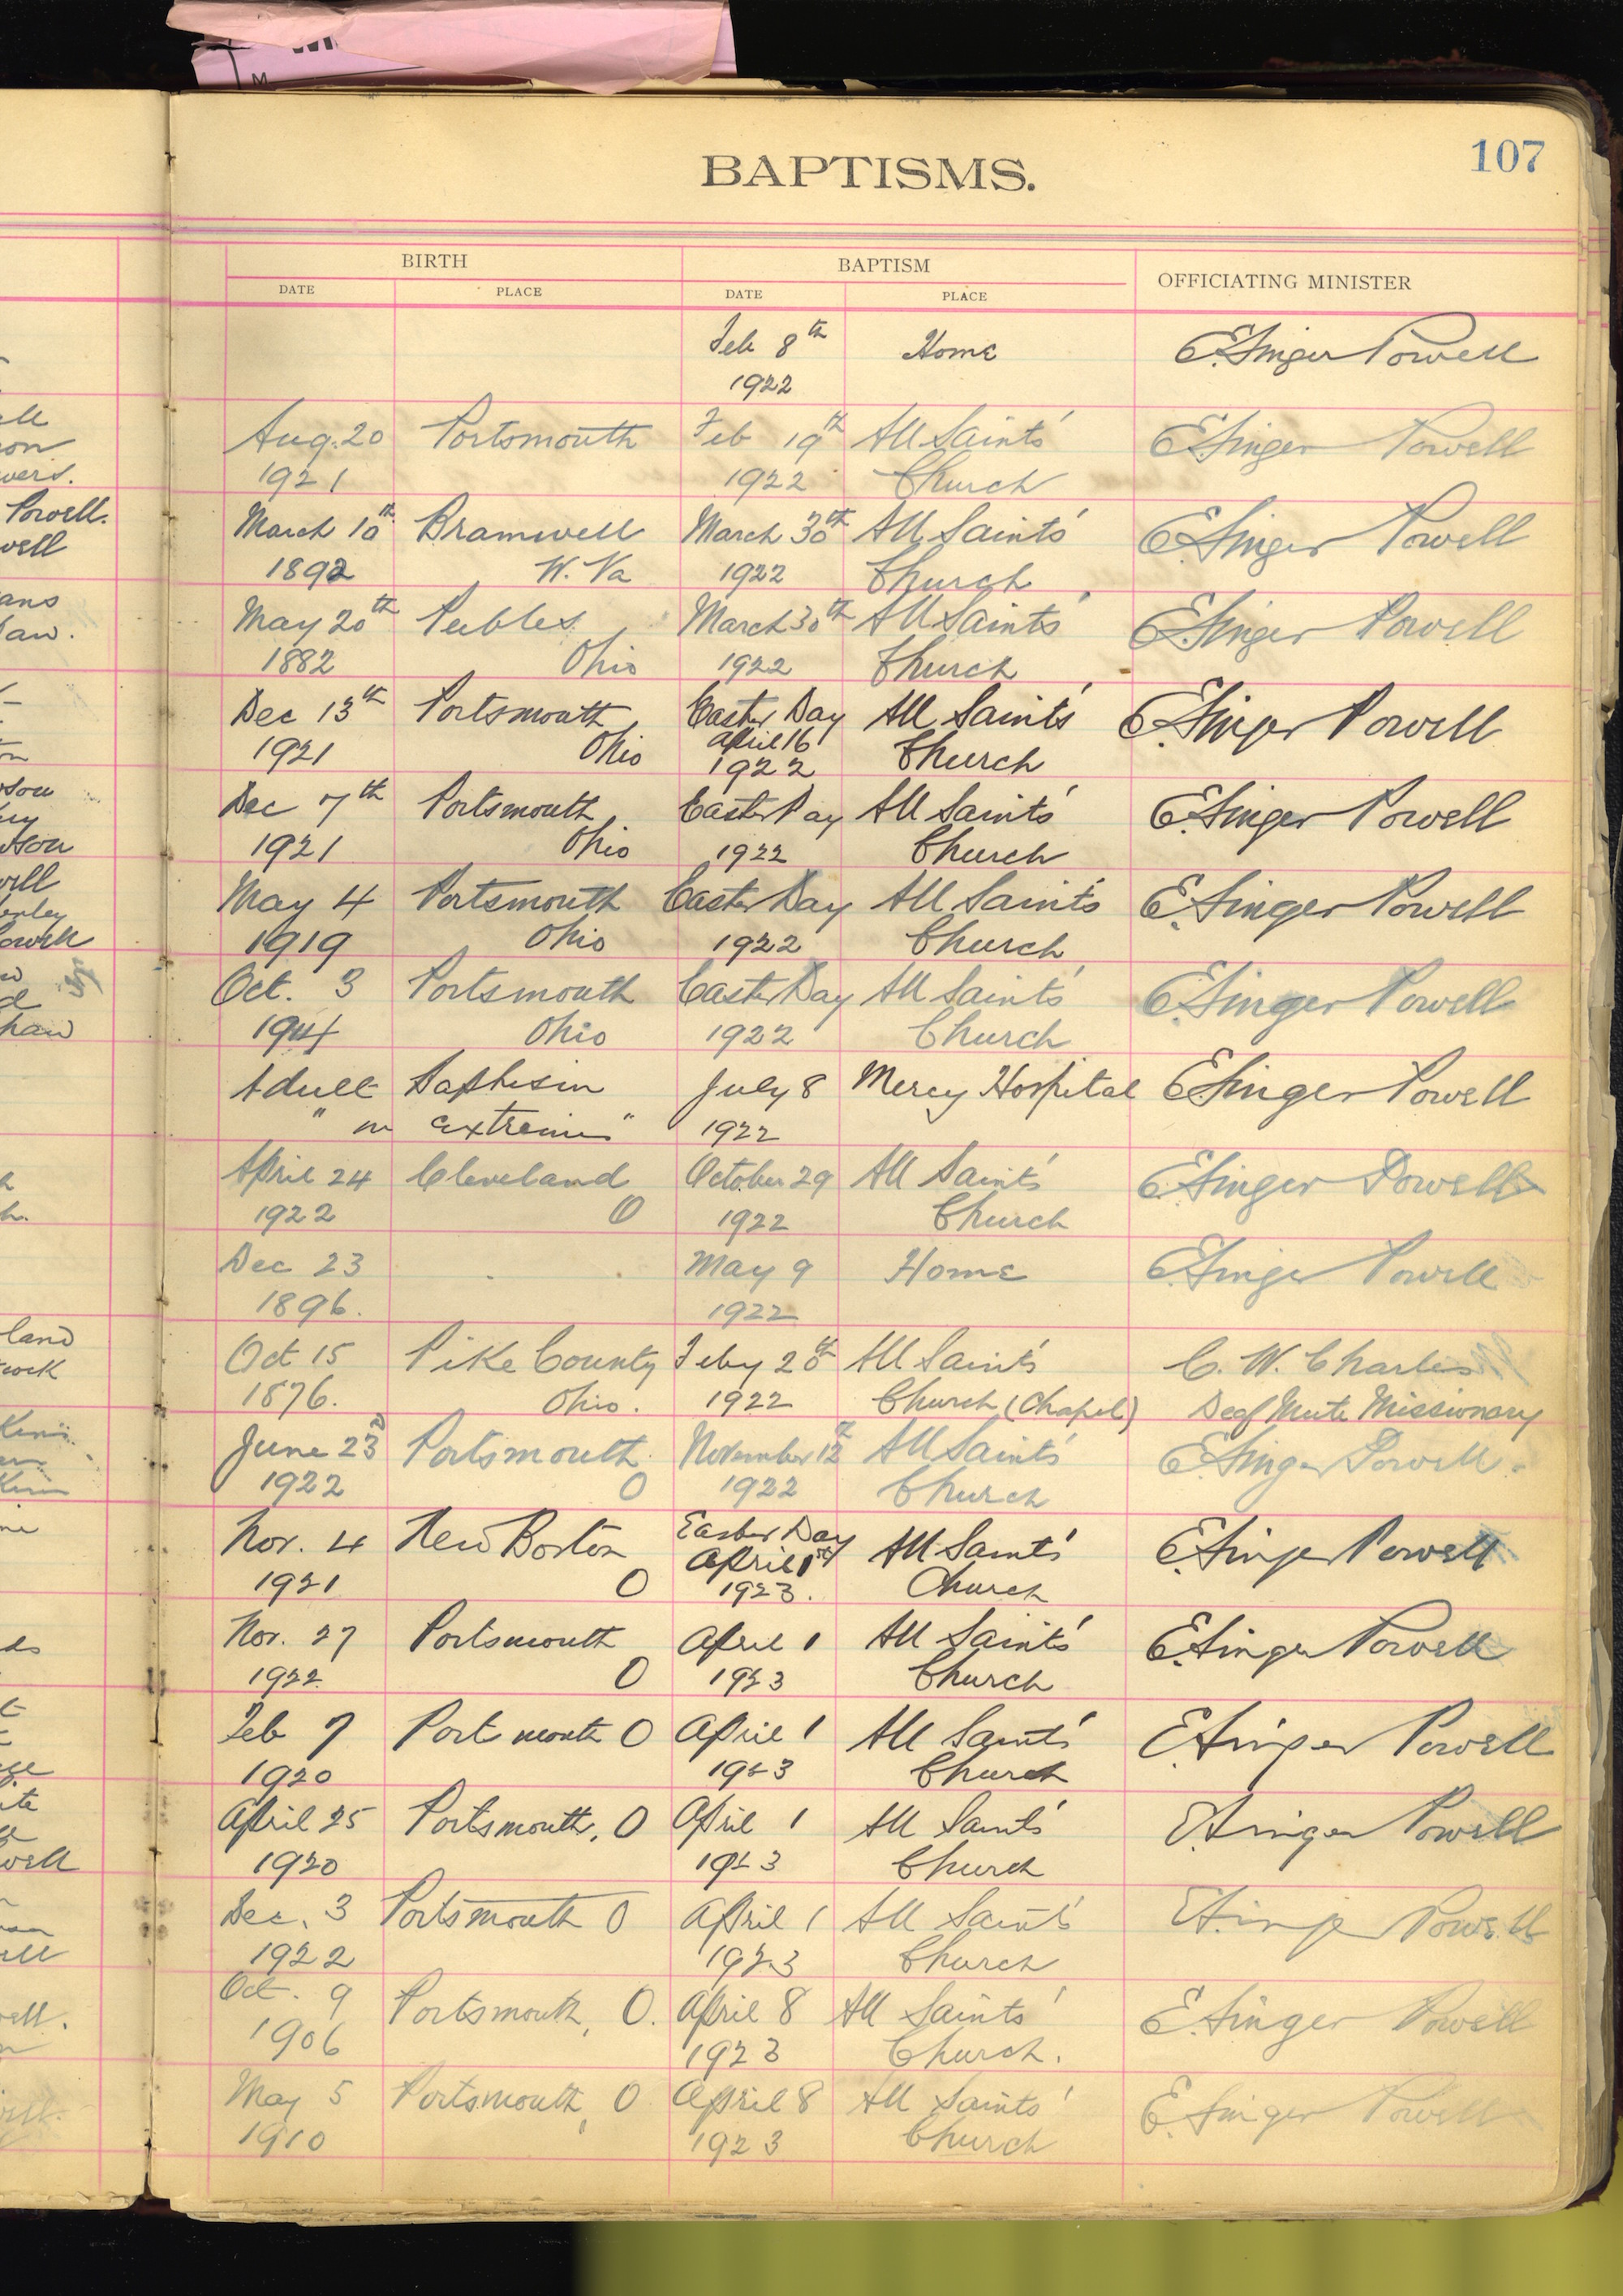 107
BAPTISMS.
BIRTH BAPTISM OFFICIATING MINISTER
DATE PLACE DATE PLACE
Feb 8th Home E. Singer Powell
1922
Aug. 20 Portsmouth Feb 19th All Saints' E Singer Powell
1921 1922 Church
March 10th Bramwell March 30th All Saints' E Singer Powell
1892 W. Va 1922 Church
May 20th Peebles March 30th All Saints' E. Singer Powell
1882 Ohio 1922 Church
Dec 13th Portsmouth Easter Day All Saints' E. Singer Powell
1921 Ohio April 16 Church
1922
Dec 7th Portsmouth Easter Day All Saints' E. Singer Powell
1921 Ohio 1922 Church
May 4 Portsmouth Easter Day All Saints' E. Singer Powell
1919 Ohio 1922 Church
Oct. 3 Portsmouth Easter Day All Saints' E. Singer Powell
Ohio 1922 Church
Adult Baptism July 8 Mercy Hospital E Singer Powell
"in extremis" 1922
April 24 Cleveland October 29 All Saints' E. Singer Powell
1922 O 1922 Church
Dec 23 May 9 Home E. Singer Powell
1896. 1922
Oct 15 Pike County Feby 28th All Saints' C. W. Charles
1876. Ohio. 1922 Church (Chapel) Deaf Mute Missionary
June 23d Portsmouth November 12th All Saints' E Singer Powell.
1922 O 1922 Church
Nov. 4 New Boston Easter Day All Saints' E. Singer Powell
1921 O April 1st Church
1923.
Nov. 27 Portsmouth April 1 All Saints' E. Singer Powell
1922 O 1923 Church
Feb 7 Portsmouth O April 1 All Saints' E Singer Powell
1920 1923 Church
April 25 Portsmouth, O April 1 All Saints' E. Singer Powell
1920 1923 Church
Dec. 3 Portsmouth O April 1 All Saints' E. Singer Powell
1922 1923 Church
Oct. 9 Portsmouth, O. April 8 All Saints' E. Singer Powell
1906 1923 Church.
May 5 Portsmouth, O April 8 All Saints' E. Singer Powell
1910 1923 Church